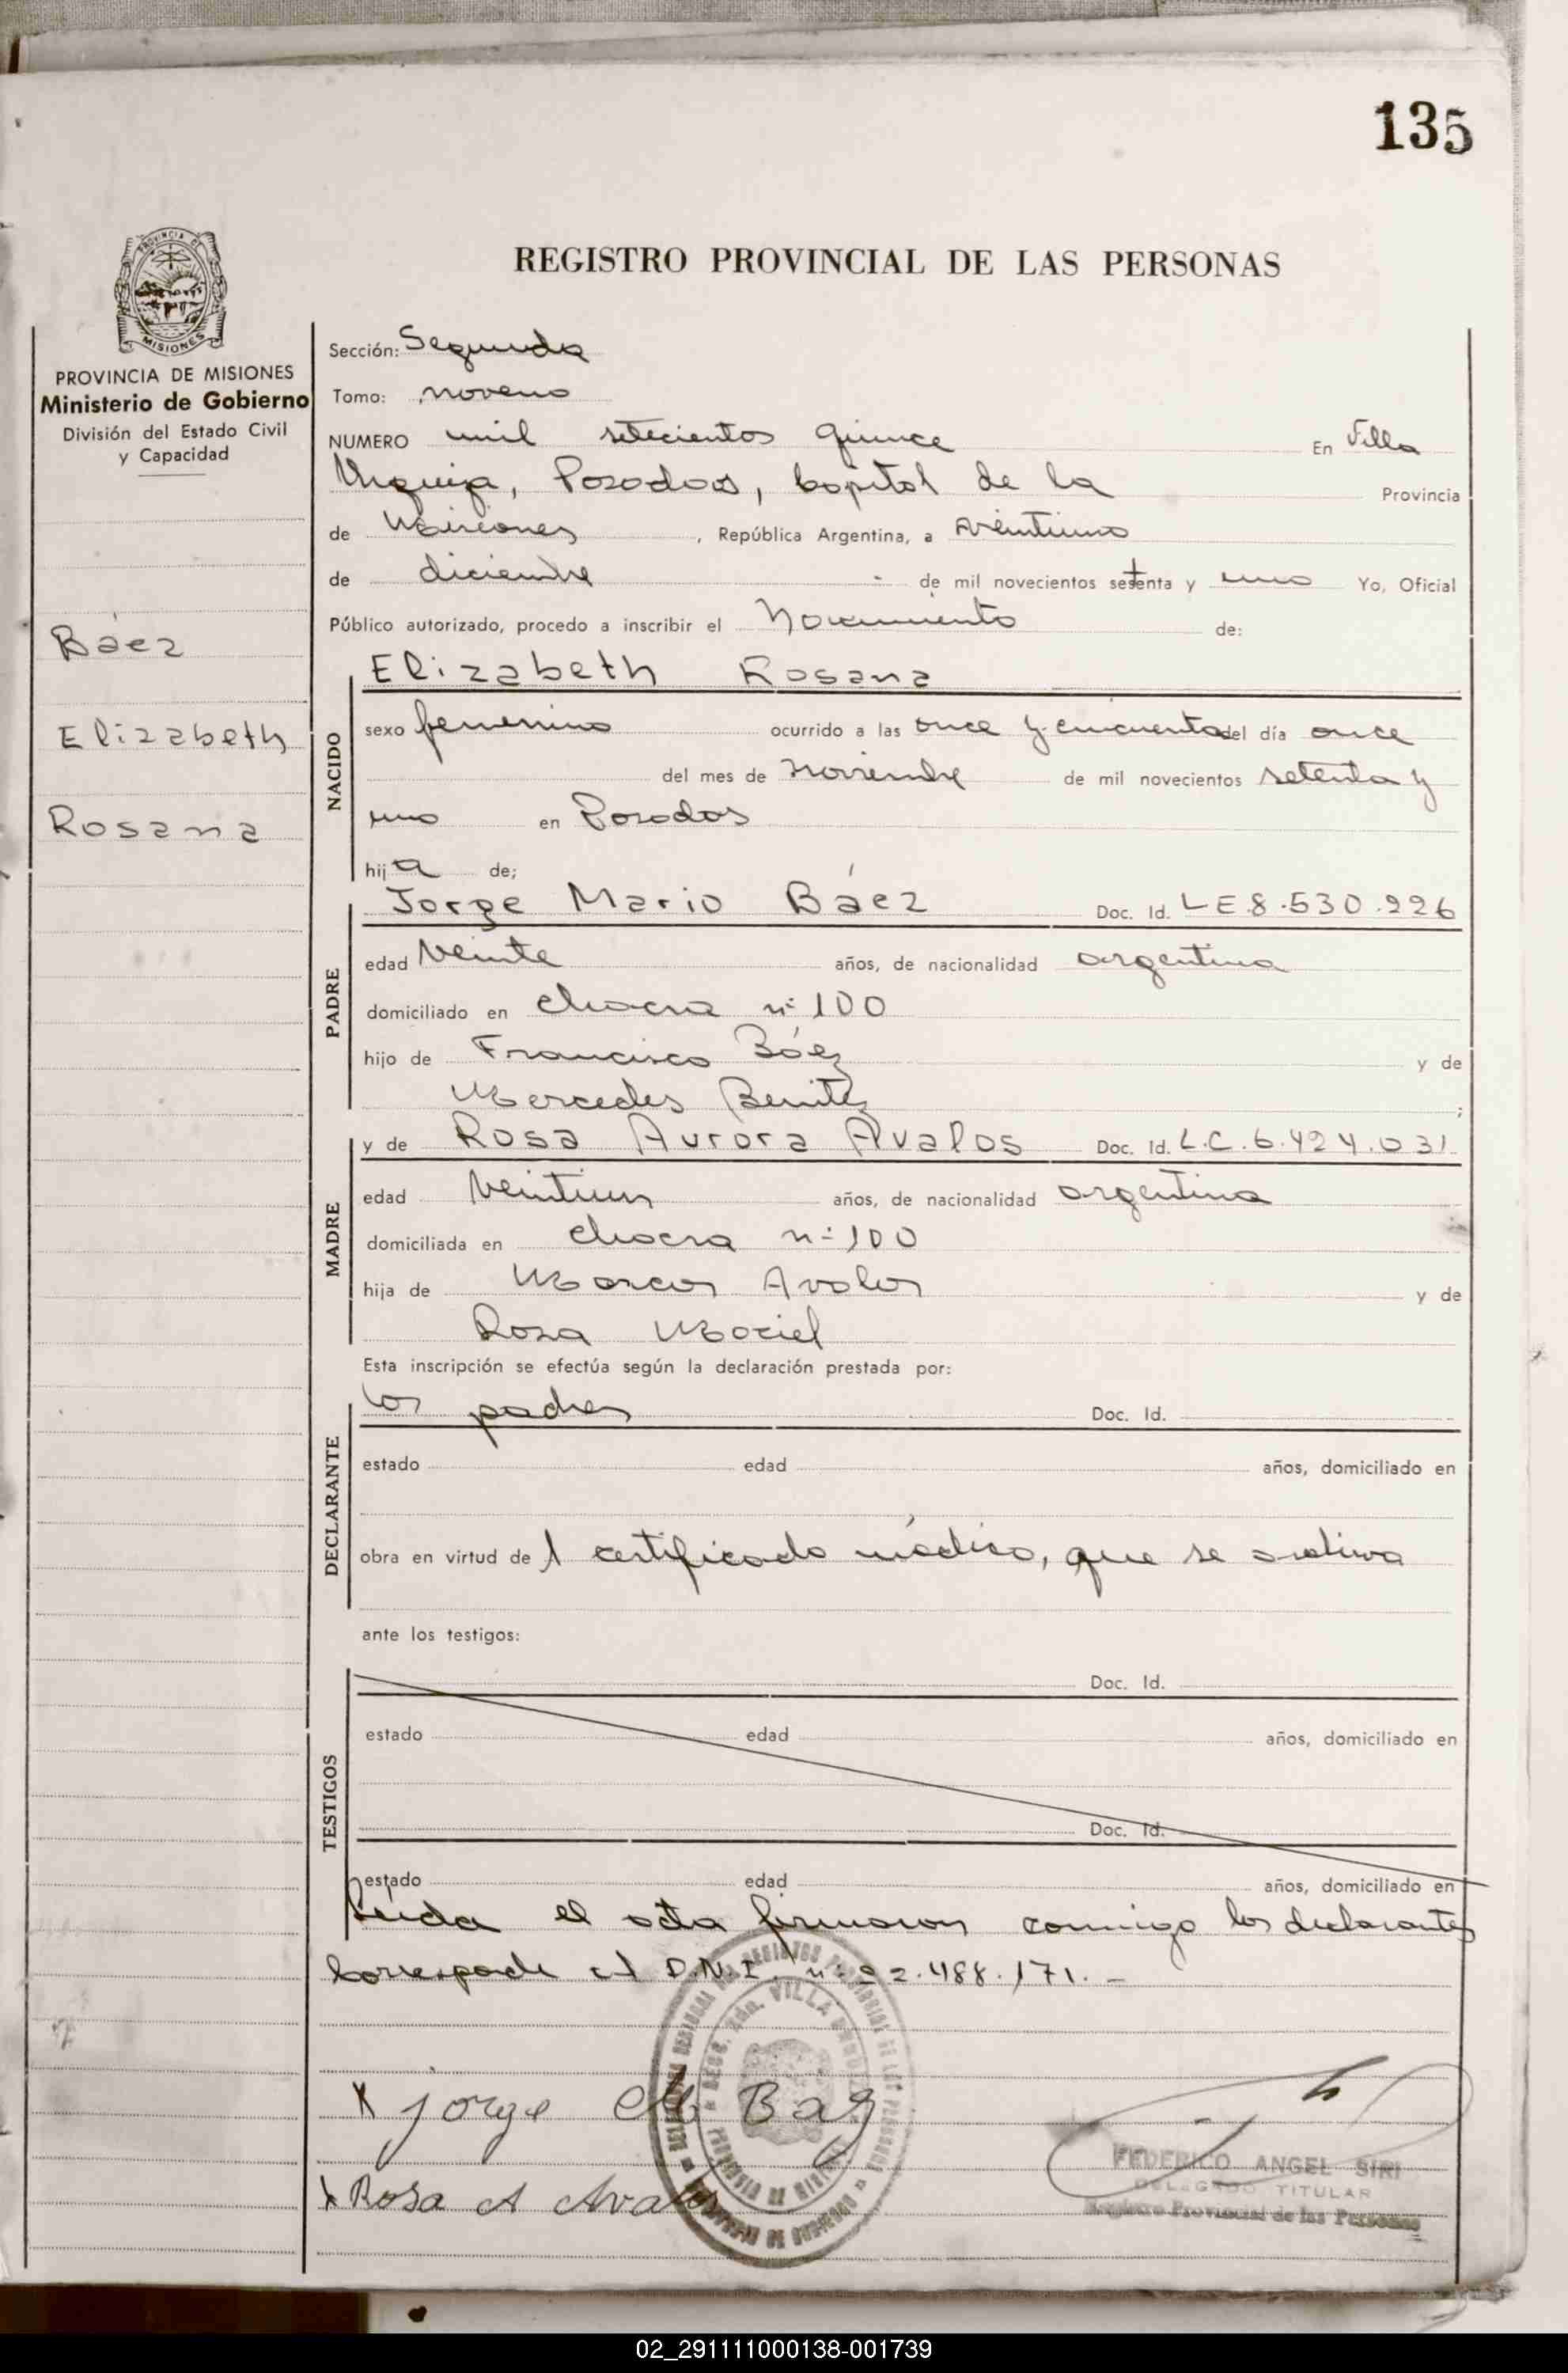 135
REGISTRO PROVINCIAL DE LAS PERSONAS
PROVINCIA DE
MISIONES
PROVINCIA DE MISIONES
Ministerio de Gobierno
División del Estado Civil
y Capacidad
Báez
Elizabeth
Rosana
Sección: Segunda
Tomo: noveno
NUMERO mil setecientos quince En Villa
Urquiza, Posadas, Capital de la Provincia
de Misiones, República Argentina, a veintiuno
de diciembre de mil novecientos setenta y uno Yo, Oficial
Público autorizado, procedo a inscribir el Nacimiento de:
Elizabeth Rosana
NACIDO
sexo femenino ocurrido a las once y cincuenta del día once
del mes de noviembre de mil novecientos setenta y
uno en Posadas
hija de;
Jorge Mario Báez Doc. Id. LE.8.530.226
PADRE
edad veinte años, de nacionalidad argentina
domiciliado en chacra nº 100
hijo de Francisco Báez y de
Mercedes Benitez;
y de Rosa Aurora Avalos Doc. Id. L.C.6.424.031
MADRE
edad veintiun años, de nacionalidad argentina
domiciliada en chacra nº 100
hija de Marcos Avalos y de
Rosa Maciel
Esta inscripción se efectúa según la declaración prestada por:
los padres Doc. Id.
DECLARANTE
estado edad años, domiciliado en
obra en virtud de 1 certificado médico, que se archiva
ante los testigos:
Doc. Id.
TESTIGOS
estado edad años, domiciliado en
Doc. Id.
estado edad años, domiciliado en
Leída el acta firmaron conmigo los declarantes
Corresponde el D.N.I. nº 22.488.171.-
x Jorge M Baez
x Rosa A Avalos
FEDERICO ANGEL SIRI
DELEGADO TITULAR
Registro Provincial de las Personas
02_291111000138-001739